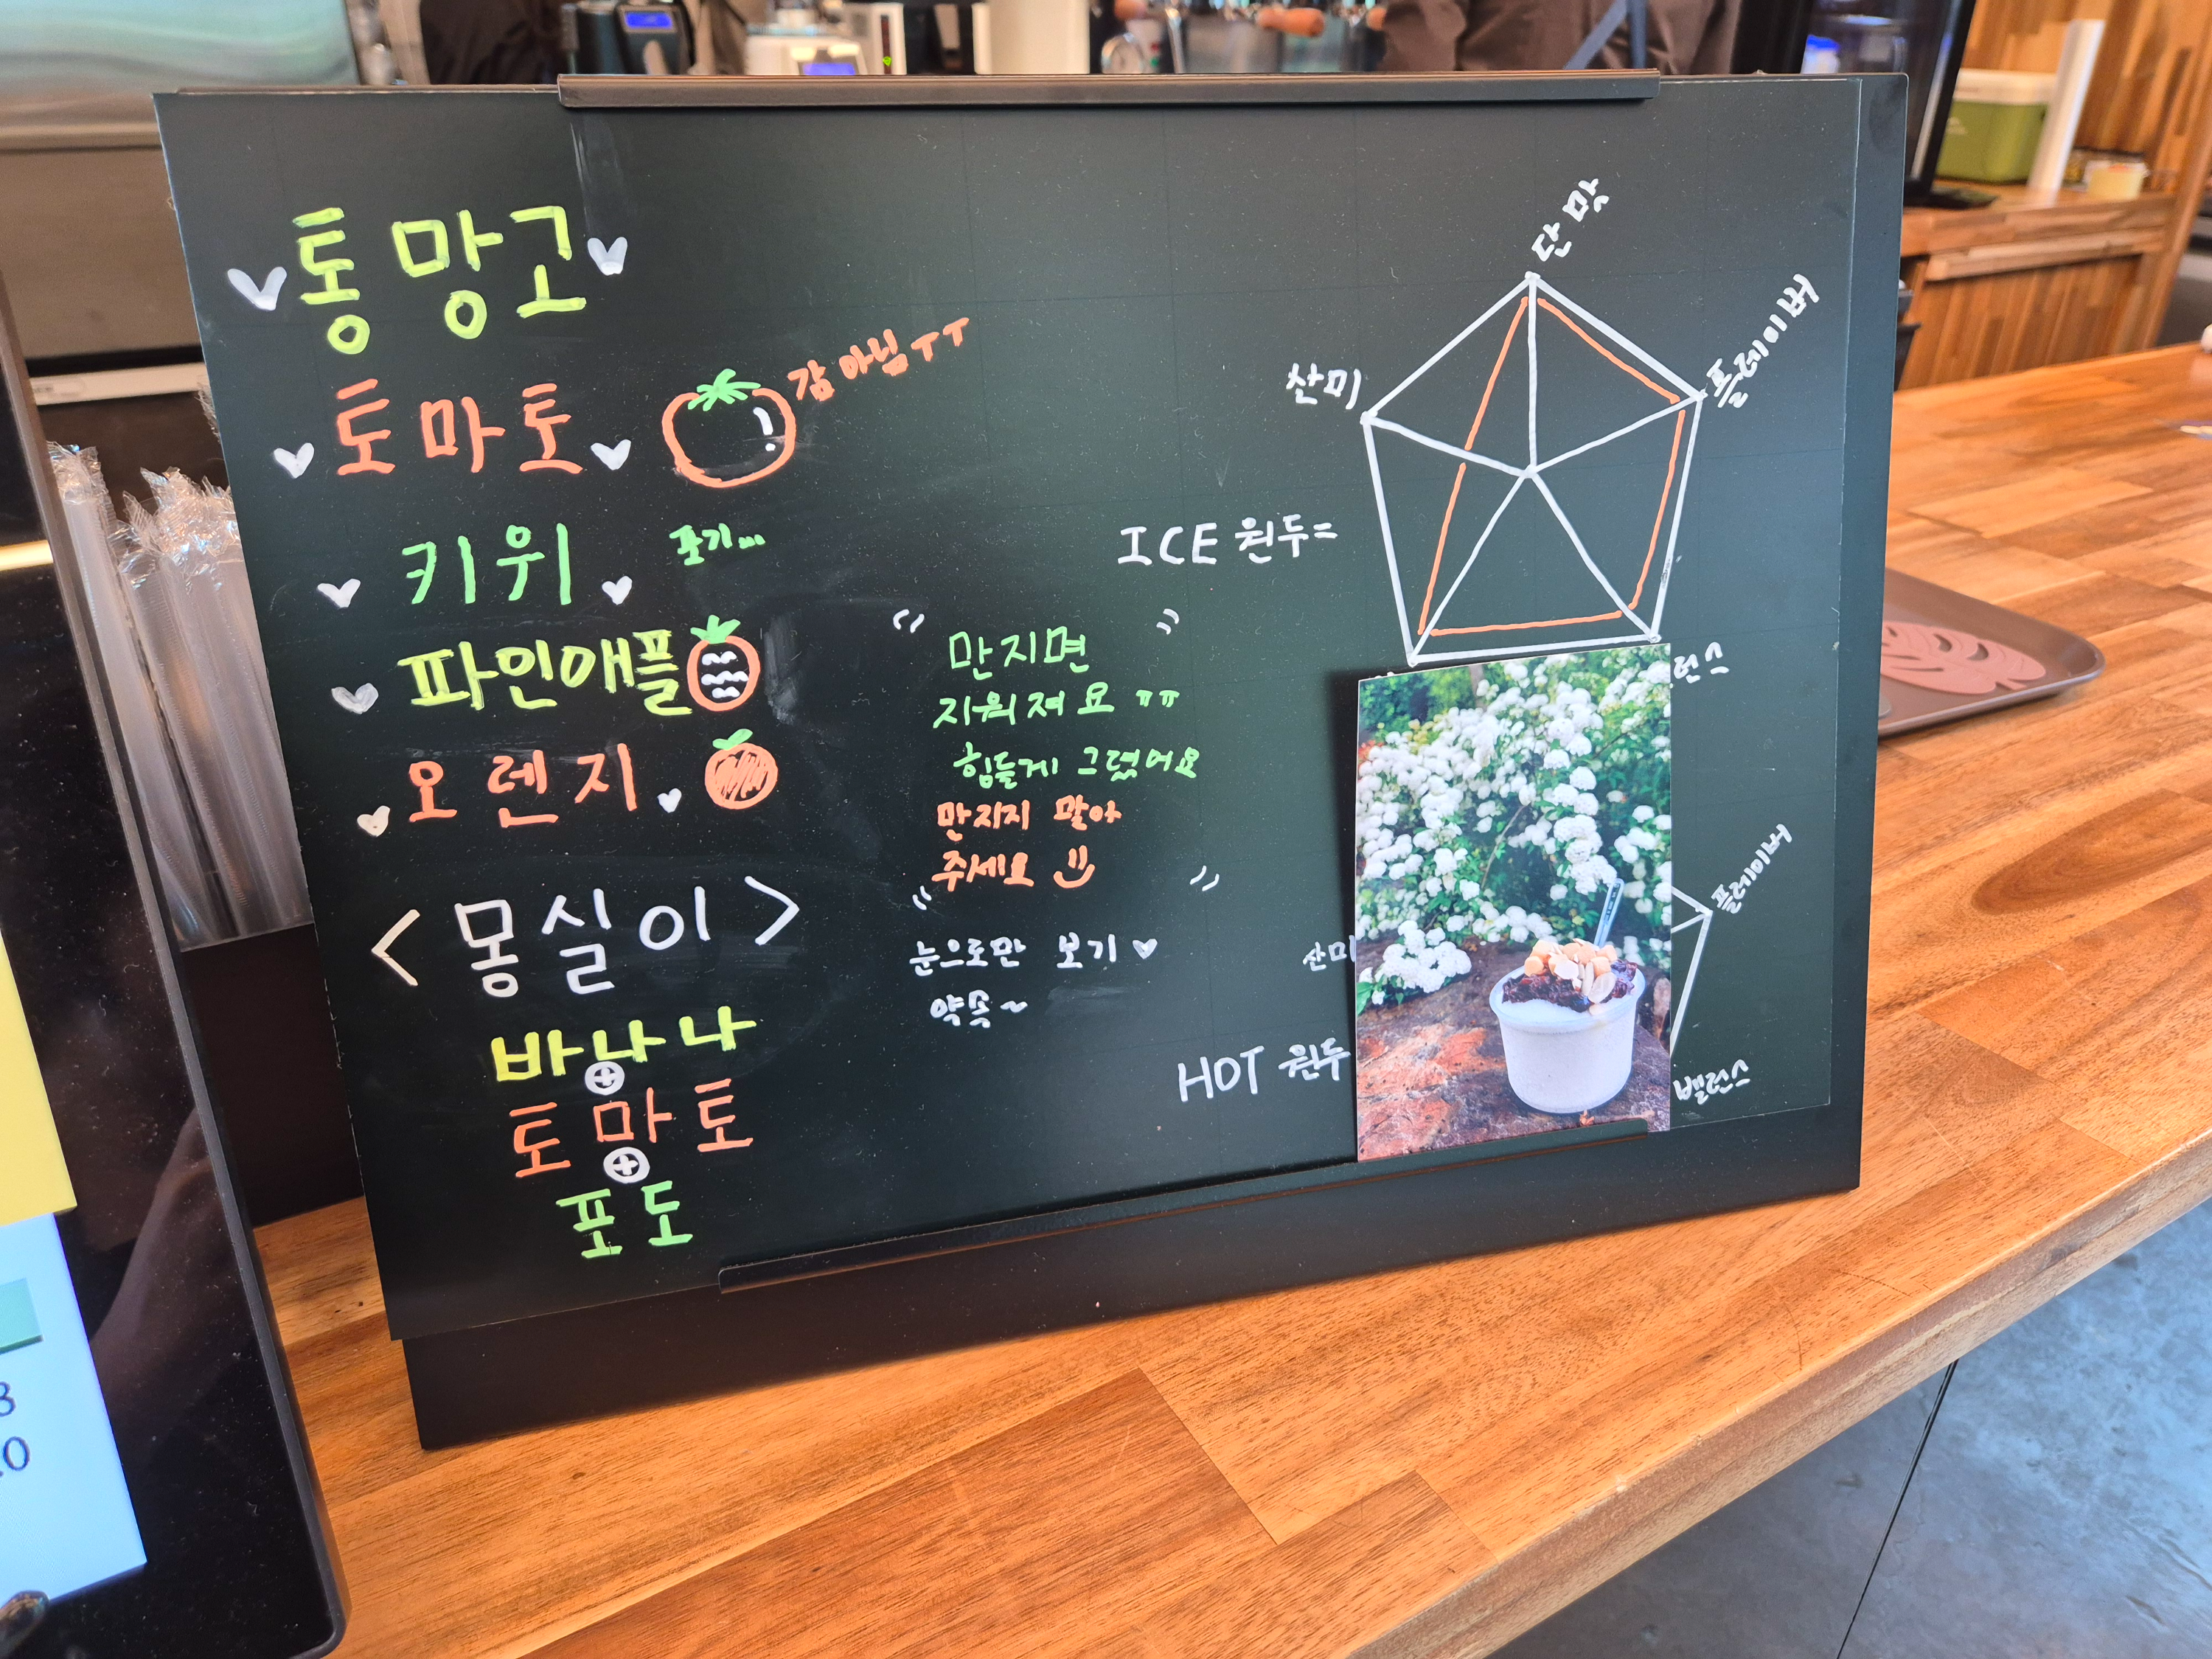 통망고
토마토 감 아님ㅜㅜ
키위 포기...
파인애플
오렌지
<몽실이>
바나나
토마토
포도
만지면
지워져요 ㅠㅠ
힘들게 그렸어요
만지지 말아
주세요
눈으로만 보기
약속~
ICE 원두=
단맛
플레이버
산미
런스
HOT 원두
산미
플레이버
밸런스
3
.0